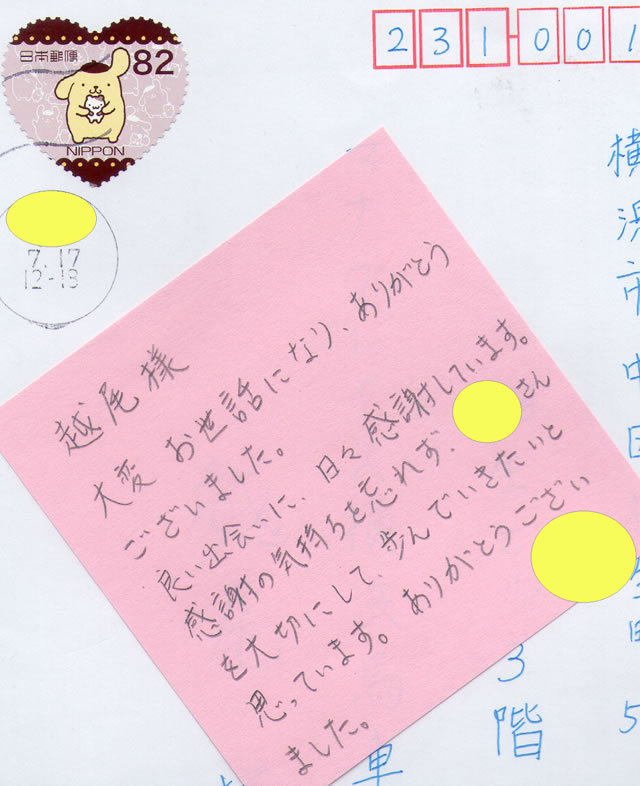 日本郵便
82
NIPPON
7.17
12-18
231-001
横浜市中区
5
3階
越尾様
大変お世話になり、ありがとう
ございました。
良い出会いに、日々感謝しています。
感謝の気持ちを忘れず、
さん
を大切にして、歩んでいきたいと
思っています。ありがとうござい
ました。